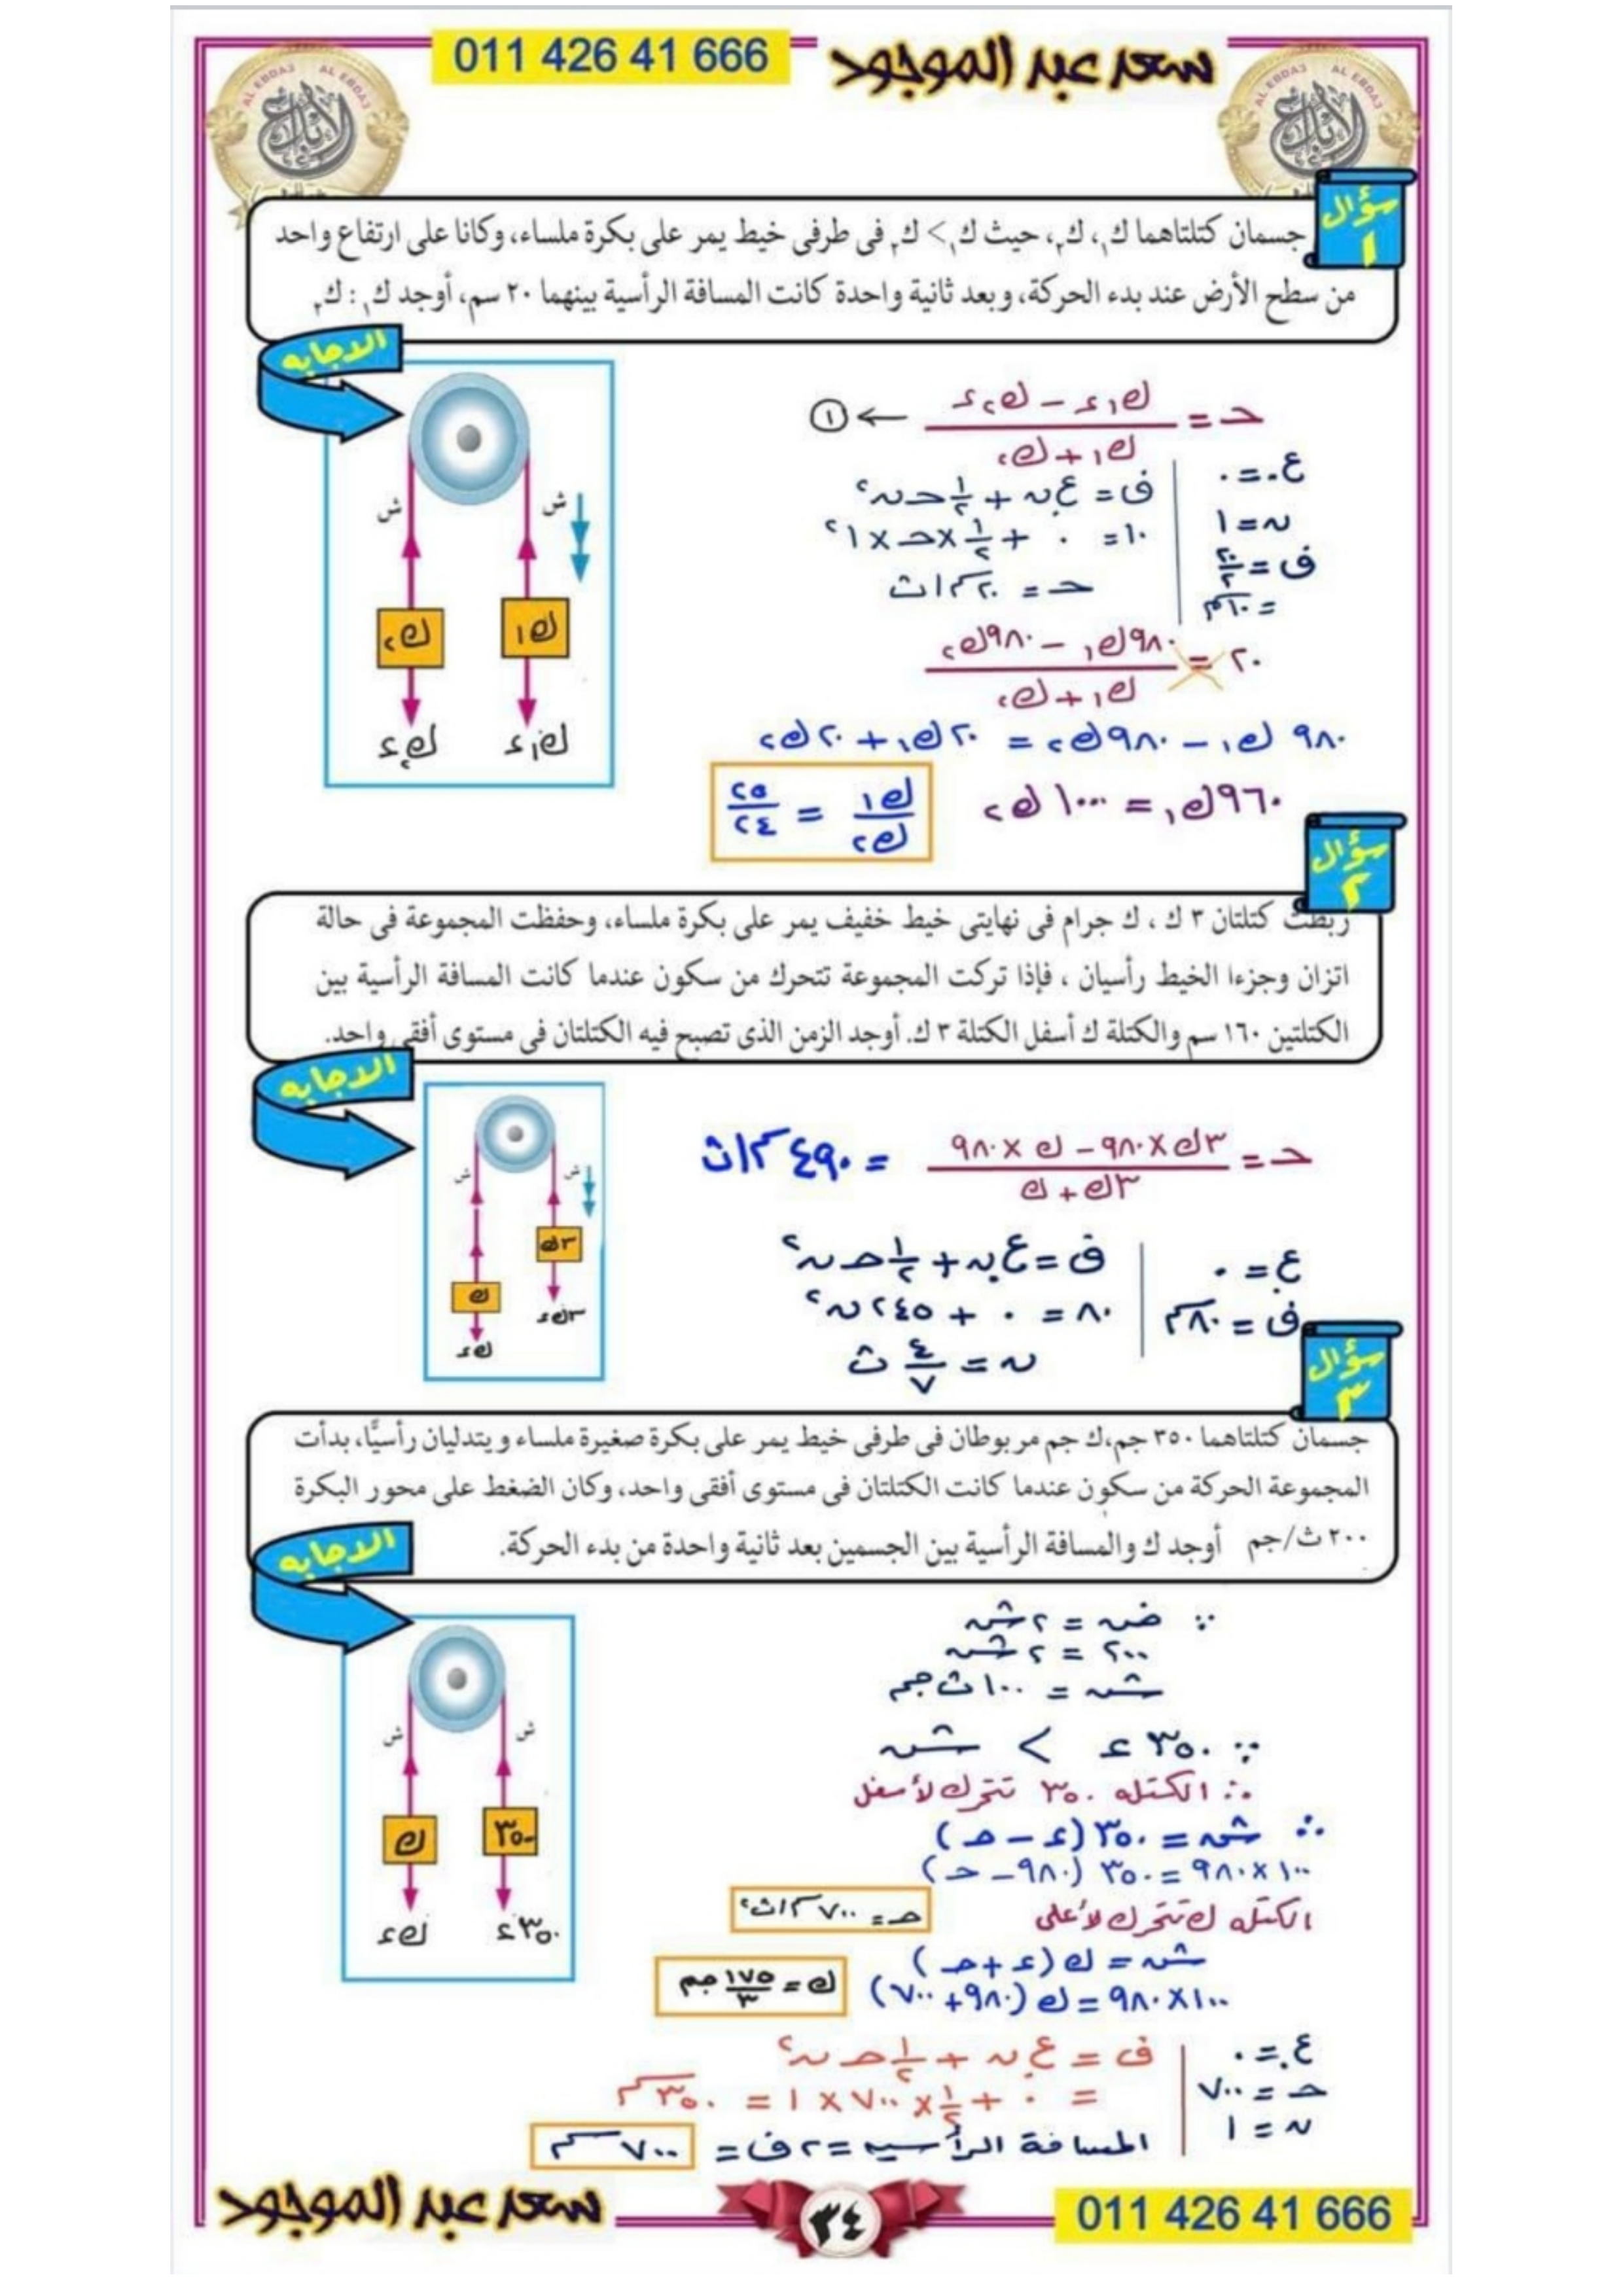 011 426 41 666
سعد عبد الموجود
سؤال ١
جسمان كتلتاهما ك١، ك٢، حيث ك١ > ك٢ فى طرفى خيط يمر على بكرة ملساء، وكانا على ارتفاع واحد
من سطح الأرض عند بدء الحركة، وبعد ثانية واحدة كانت المسافة الرأسية بينهما ٢٠ سم، أوجد ك١ : ك٢
الاجابه
ش ش
ك٢ ك١
ك٢ء ك١ء
حـ = (ك١ء - ك٢ء) / (ك١ + ك٢) ← ①
ع. = ٠
ن = ١
ف = ٢٠/٢
= ١٠سم
ف = ع.ن + ١/٢ حـ ن٢
١٠ = ٠ + ١/٢ × حـ × ١٢
حـ = ٢٠ سم/ث
٢٠ = (٩٨٠ك١ - ٩٨٠ك٢) / (ك١ + ك٢)
٩٨٠ ك١ - ٩٨٠ك٢ = ٢٠ك١ + ٢٠ك٢
٩٦٠ك١ = ١٠٠٠ك٢
ك١/ك٢ = ٢٥/٢٤
سؤال ٢
ربطت كتلتان ٣ ك ، ك جرام فى نهايتى خيط خفيف يمر على بكرة ملساء، وحفظت المجموعة فى حالة
اتزان وجزءا الخيط رأسيان ، فإذا تركت المجموعة تتحرك من سكون عندما كانت المسافة الرأسية بين
الكتلتين ١٦٠ سم والكتلة ك أسفل الكتلة ٣ ك. أوجد الزمن الذى تصبح فيه الكتلتان فى مستوى أفقى واحد.
الاجابه
ش ش
٣ك
ك
٣ك ء
ك ء
حـ = (٣ك × ٩٨٠ - ك × ٩٨٠) / (٣ك + ك) = ٤٩٠ سم/ث
ع. = ٠
ف = ٨٠سم
ف = ع.ن + ١/٢ حـ ن٢
٨٠ = ٠ + ٢٤٥ ن٢
ن = ٤/٧ ث
سؤال ٣
جسمان كتلتاهما ٣٥٠ جم،ك جم مربوطان فى طرفى خيط يمر على بكرة صغيرة ملساء ويتدليان رأسيًّا، بدأت
المجموعة الحركة من سكون عندما كانت الكتلتان فى مستوى أفقى واحد، وكان الضغط على محور البكرة
٢٠٠ ث/جم أوجد ك والمسافة الرأسية بين الجسمين بعد ثانية واحدة من بدء الحركة.
الاجابه
ش ش
ك ٣٥٠
ك ء ٣٥٠ء
∵ ضـ = ٢شـ
٢٠٠ = ٢شـ
شـ = ١٠٠ ث جم
∵ ٣٥٠ ء > شـ
∴ الكتله ٣٥٠ تتحرك لأسفل
∴ شـ = ٣٥٠ (ء - حـ)
١٠٠ × ٩٨٠ = ٣٥٠ (٩٨٠ - حـ)
حـ = ٧٠٠ سم/ث٢
الكتله ك تتحرك لأعلى
شـ = ك (ء + حـ)
١٠٠ × ٩٨٠ = ك (٩٨٠ + ٧٠٠)
ك = ١٧٥/٣ جم
ع. = ٠
حـ = ٧٠٠
ن = ١
ف = ع.ن + ١/٢ حـ ن٢
= ٠ + ١/٢ × ٧٠٠ × ١ = ٣٥٠سم
المسافة الرأسيه = ٢ف = ٧٠٠سم
سعد عبد الموجود
٣٤
011 426 41 666